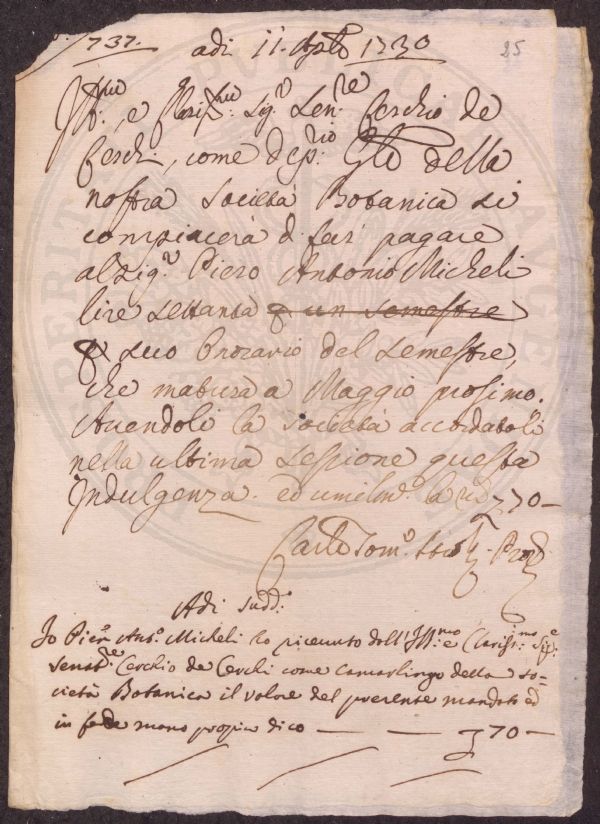 737. adi 11. Agto 1730 25
Illmo:, e Clarissmo: Sigr: Senre: Cerchio de
Cerchi, come deprio: Gle della
nostra Società Botanica si
compiacerà di far pagare
al Sigr: Piero Antonio Micheli
lire settanta p un semestre
p suo Onorario del semestre,
che matura a Maggio prossimo.
Avendoli la Società accordatoli
nella ultima sessione questa
Indulgenza. ed umilmo: la 70—
Carlo Tomo:
Adi sudd:
Io Pier Anto: Micheli ho ricevuto dall'Illmo: e Clarissimo: Sige:
Senatre: Cerchio de Cerchi come camarlingo della so=
cietà Botanica il valore del presente mandato ed
in fede mano propria dico — — — 70 —